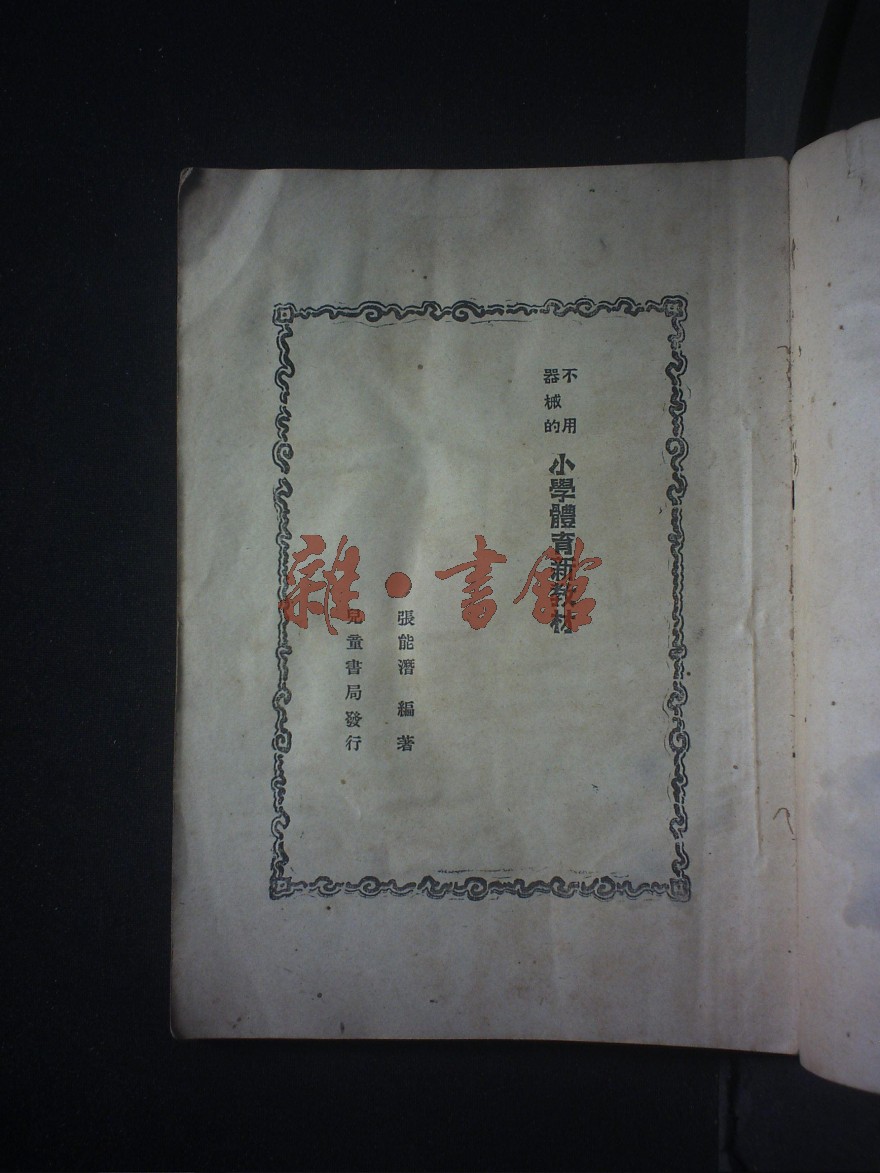 不用
器械的
小學體育新教材
張能潛 編著
兒童書局發行
雜·書館